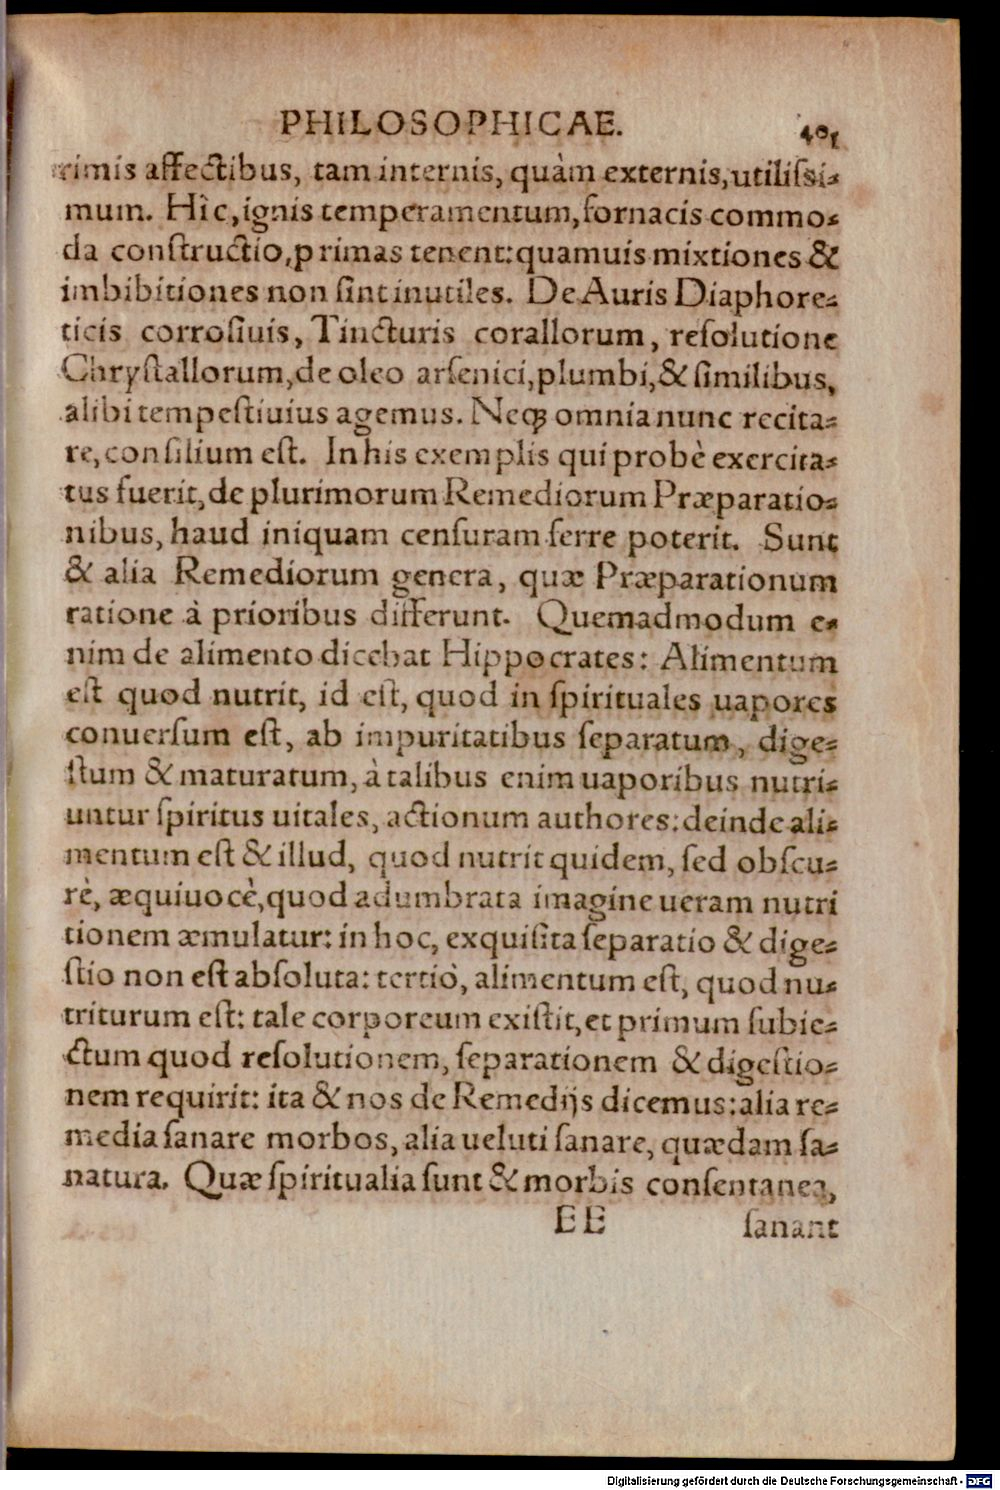 PHILOSOPHICAE. 401
rimis affectibus, tam internis, quàm externis, utilissi-
mum. Hîc, ignis temperamentum, fornacis commo-
da constructio, primas tenent: quamuis mixtiones &
imbibitiones non sint inutiles. De Auris Diaphore-
ticis corrosiuis, Tincturis corallorum, resolutione
Chrystallorum, de oleo arsenici, plumbi, & similibus,
alibi tempestiuius agemus. Neqꝫ omnia nunc recita-
re, consilium est. In his exemplis qui probè exercita-
tus fuerit, de plurimorum Remediorum Præparatio-
nibus, haud iniquam censuram ferre poterit. Sunt
& alia Remediorum genera, quæ Præparationum
ratione à prioribus differunt. Quemadmodum e-
nim de alimento dicebat Hippocrates: Alimentum
est quod nutrit, id est, quod in spirituales uapores
conuersum est, ab impuritatibus separatum, dige-
stum & maturatum, à talibus enim uaporibus nutri-
untur spiritus uitales, actionum authores: deinde ali-
mentum est & illud, quod nutrit quidem, sed obscu-
rè, æquiuocè, quod adumbrata imagine ueram nutri
tionem æmulatur: in hoc, exquisita separatio & dige-
stio non est absoluta: tertiò, alimentum est, quod nu-
triturum est: tale corporeum existit, et primum subie-
ctum quod resolutionem, separationem & digestio-
nem requirit: ita & nos de Remedijs dicemus: alia re-
media sanare morbos, alia ueluti sanare, quædam sa-
natura. Quæ spiritualia sunt & morbis consentanea,
EE sanant
Digitalisierung gefördert durch die Deutsche Forschungsgemeinschaft - DFG